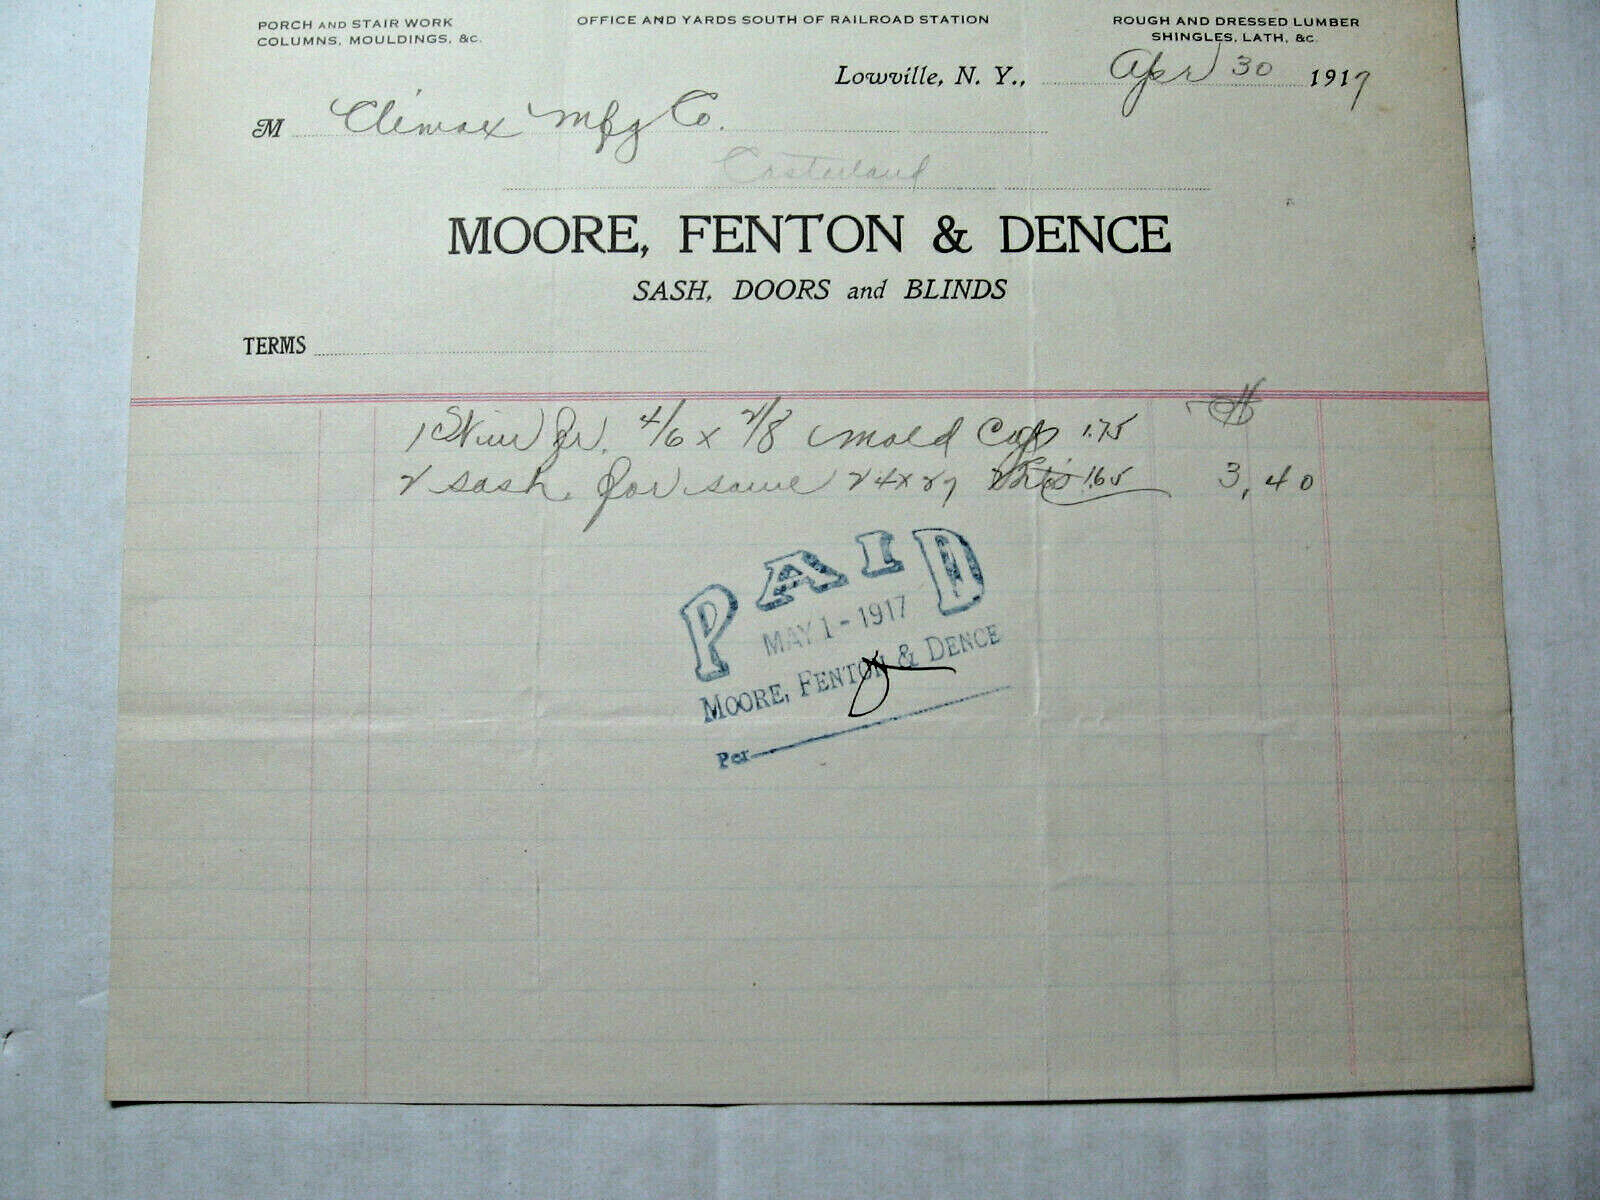 PORCH AND STAIR WORK
COLUMNS, MOULDINGS, &c.
OFFICE AND YARDS SOUTH OF RAILROAD STATION
ROUGH AND DRESSED LUMBER
SHINGLES, LATH, &c.
Lowville, N. Y., Apr 30 1917
M Climax Mfg Co.
Castorland
MOORE, FENTON & DENCE
SASH, DOORS and BLINDS
TERMS
1 Win Fr. 4/6 x 2/8 mold Cap 1.75
2 sash for same 24 x 27 1.65 3,40
PAID
MAY 1 - 1917
MOORE, FENTON & DENCE
Per